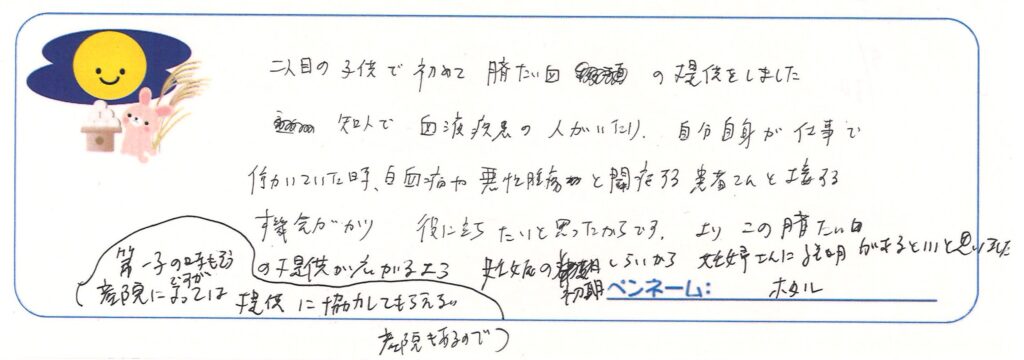 二人目の子供で初めて臍たい血の提供をしました
知人で血液疾患の人がいたり、自分自身が仕事で
働いていた時、白血病や悪性腫瘍と闘病する患者さんと接する
機会があり 役に立ちたいと思ったからです。より この臍たい血
の提供が広がるよう 妊娠の初期しらいから 妊婦さんに説明があるといいと思いました
(第一子の時もそう
ですが
産院によっては
提供に協力してもらえる
産院もあるので)
ペンネーム: ホタル